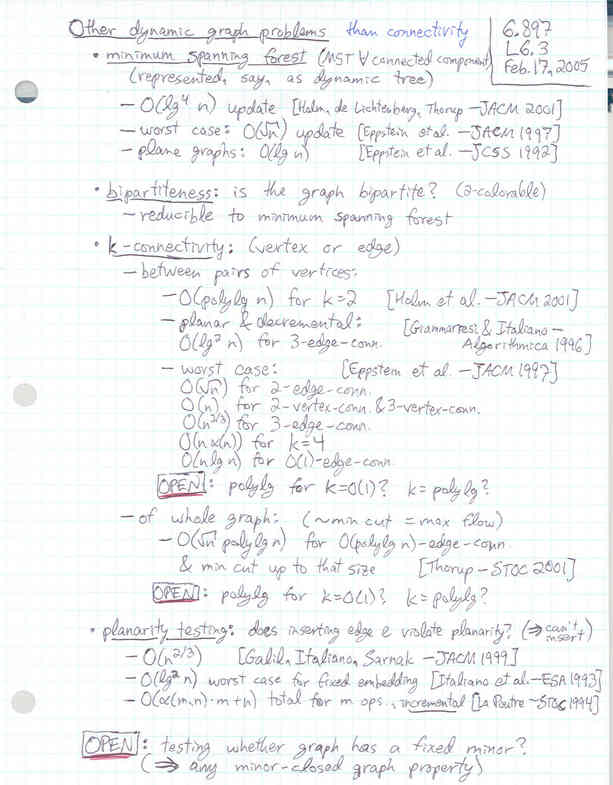 Other dynamic graph problems than connectivity
6.897
L6.3
Feb. 17, 2005
• minimum spanning forest (MST ∀ connected component)
(represented, say, as dynamic tree)
– O(lg⁴ n) update [Holm, de Lichtenberg, Thorup – JACM 2001]
– worst case: O(√n) update [Eppstein et al. – JACM 1997]
– plane graphs: O(lg n) [Eppstein et al. – JCSS 1992]
• bipartiteness: is the graph bipartite? (2-colorable)
– reducible to minimum spanning forest
• k-connectivity: (vertex or edge)
– between pairs of vertices:
– O(polylg n) for k=2 [Holm et al. – JACM 2001]
– planar & decremental: [Giammarresi & Italiano –
O(lg² n) for 3-edge-conn. Algorithmica 1996]
– worst case: [Eppstein et al. – JACM 1997]
O(√n) for 2-edge-conn.
O(n) for 2-vertex-conn. & 3-vertex-conn.
O(n^2/3) for 3-edge-conn.
O(n α(n)) for k=4
O(n lg n) for O(1)-edge-conn.
OPEN: polylg for k=O(1)? k=polylg?
– of whole graph: (~min cut = max flow)
– O(√n polylg n) for O(polylg n)-edge-conn.
& min cut up to that size [Thorup – STOC 2001]
OPEN: polylg for k=O(1)? k=polylg?
• planarity testing: does inserting edge e violate planarity? (⇒ can't
insert)
– O(n^2/3) [Galil, Italiano, Sarnak – JACM 1999]
– O(lg² n) worst case for fixed embedding [Italiano et al. – ESA 1993]
– O(α(m,n)·m+n) total for m ops., incremental [La Poutre – STOC 1994]
OPEN: testing whether graph has a fixed minor?
(⇒ any minor-closed graph property)